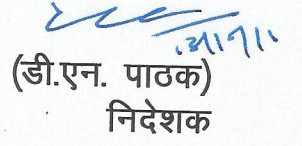 (डी.एन. पाठक)
निदेशक